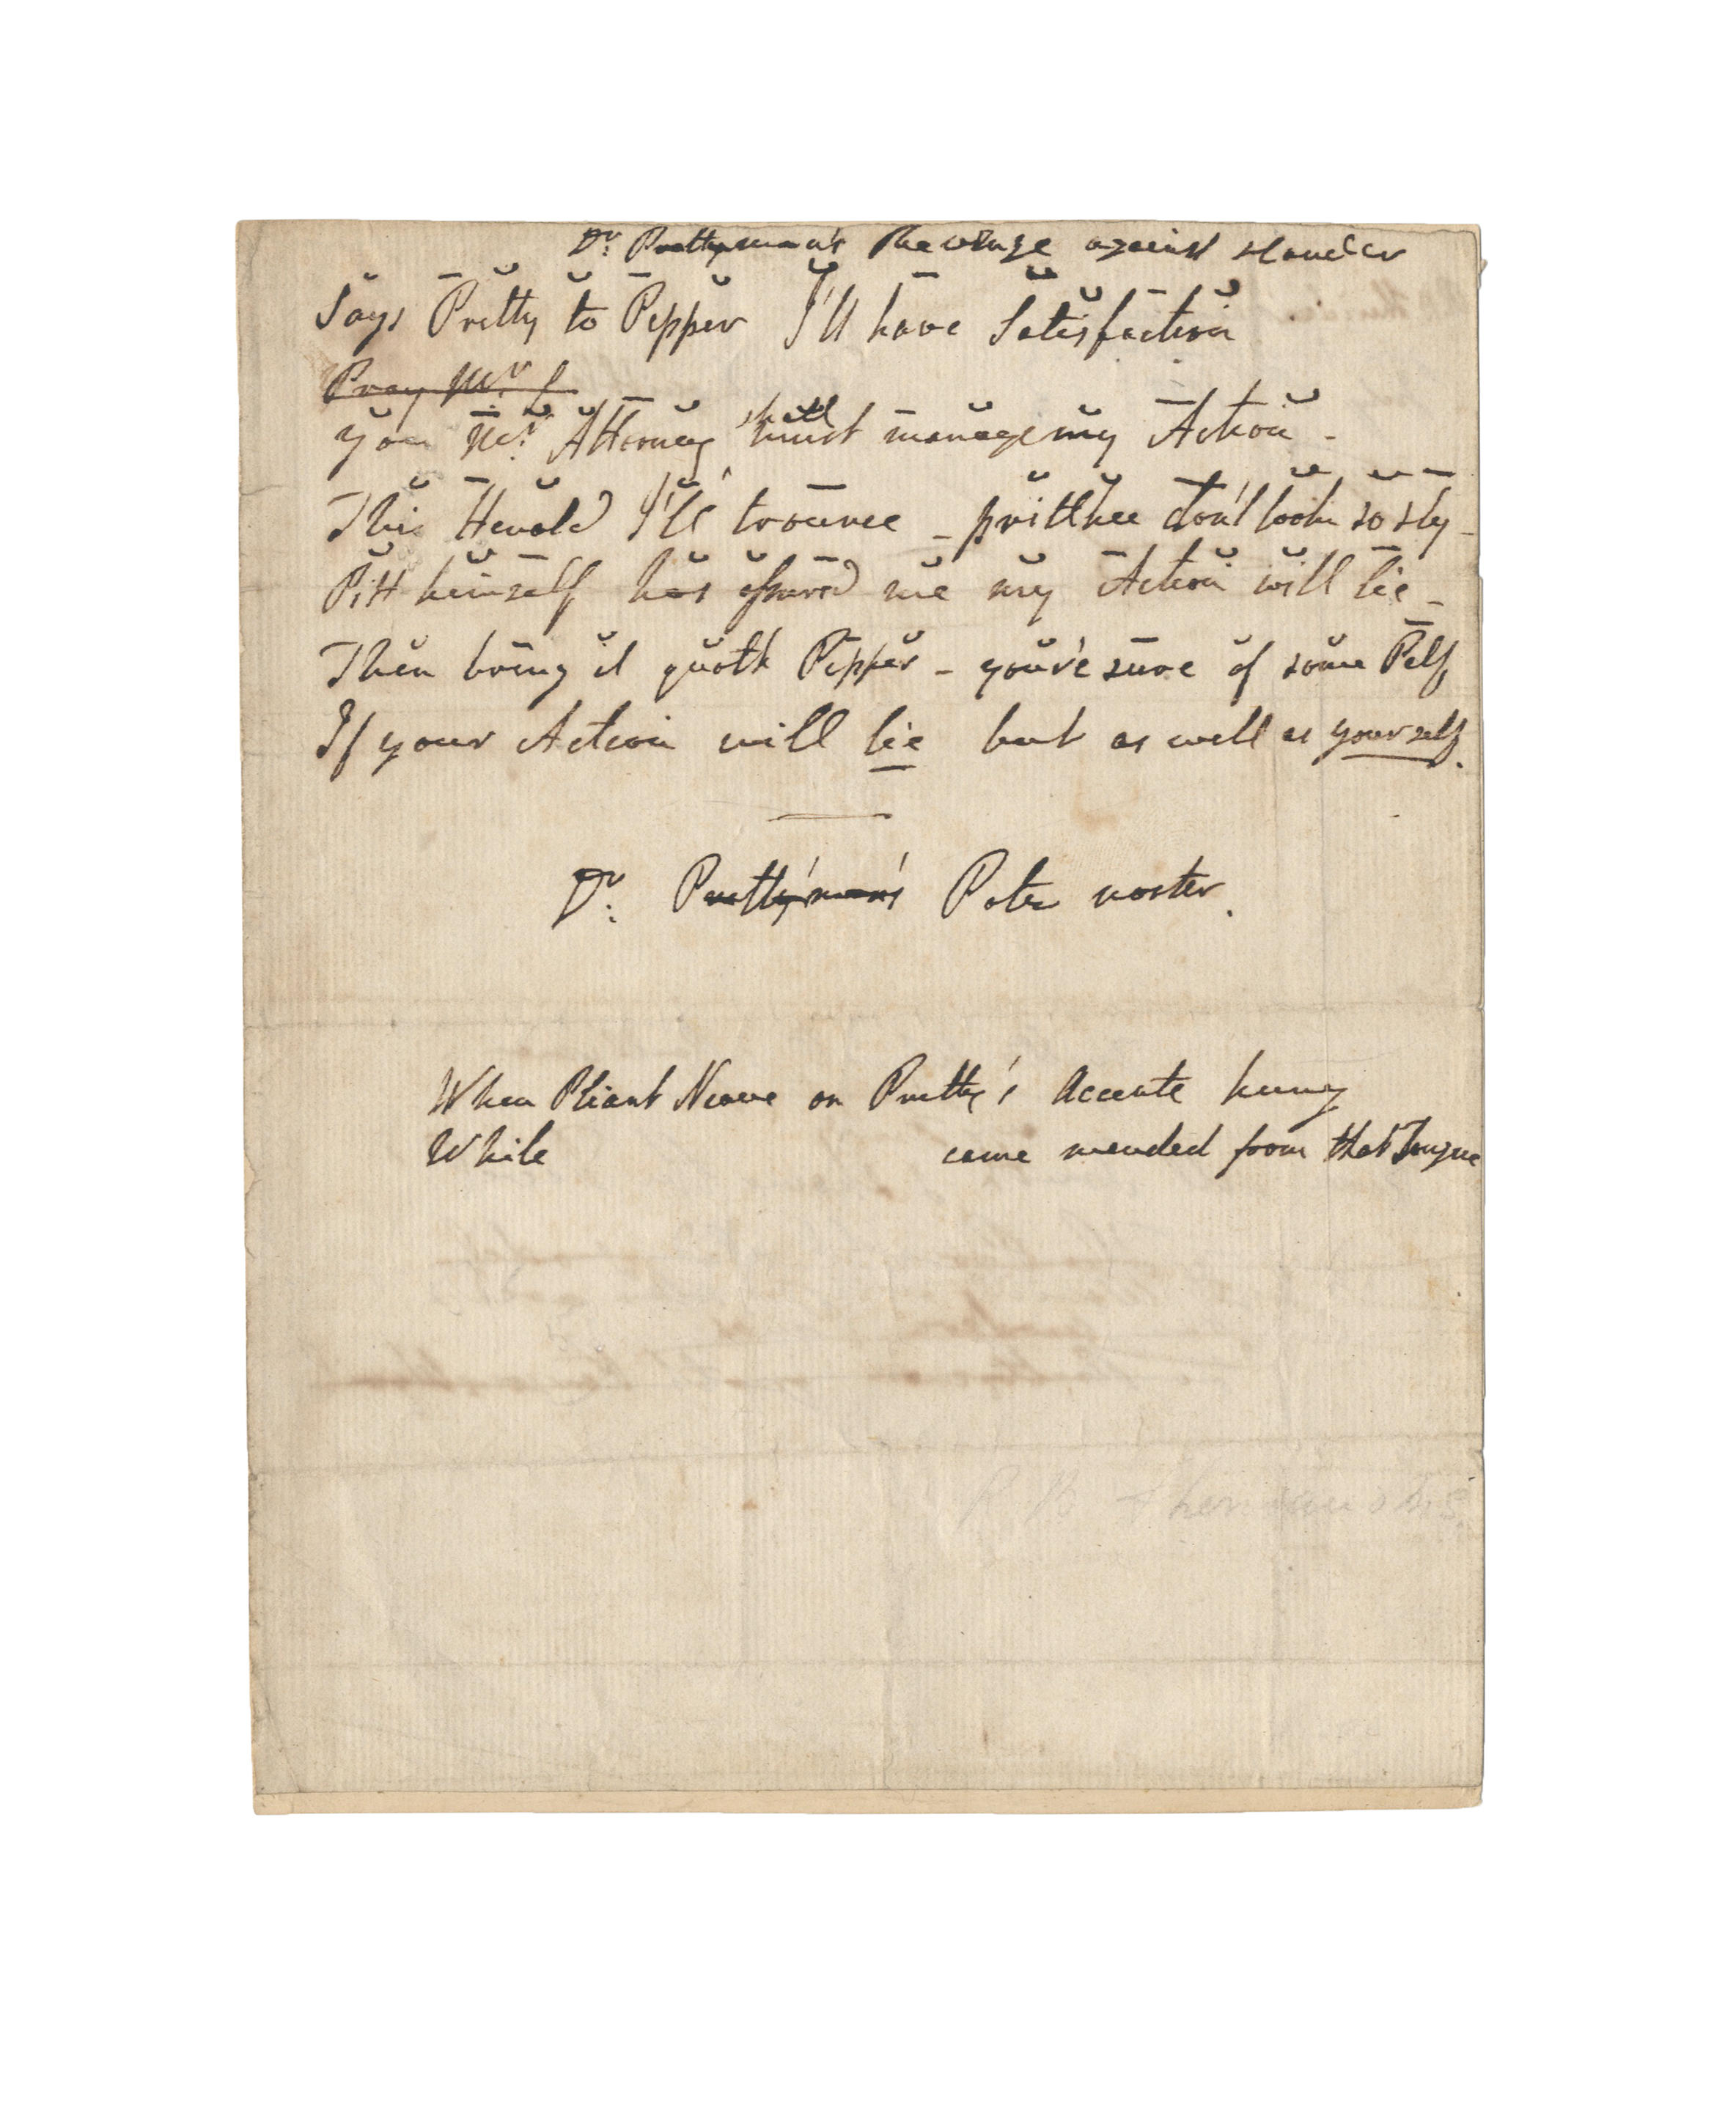 Dr. Prettyman's Revenge against slander
Says Pretty to Pepper I'll have Satisfaction
Pray Mr.
you Mr. Attorney shall must manage my Action -
This Herald I'll trounce - prithee don't look so sly -
Pitt himself has assured me my Action will lie -
Then bring it quoth Pepper - you're sure of some Pelf
If your Action will lie but as well as yourself.
Dr. Pretty'man's Pater noster.
When Pliant Neave on Pretty's Accents hung
While came mended from that Tongue
R B Sheridan's MS